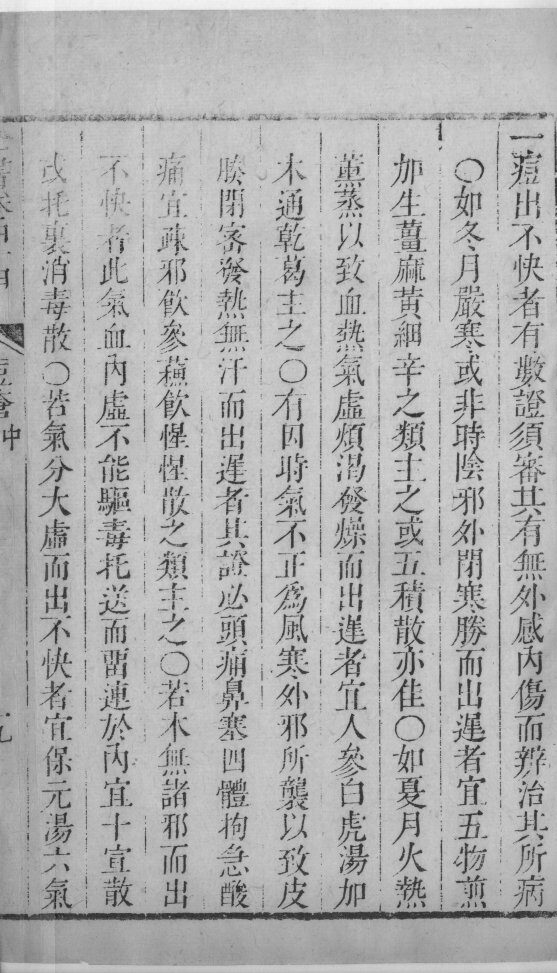 一痘出不快者有數證須審其有無外感內傷而辨治其所病
○如冬月嚴寒或非時陰邪外閉寒勝而出遲者宜五物煎
加生薑麻黃細辛之類主之或五積散亦佳○如夏月火熱
薰蒸以致血熱氣虛煩渴發燥而出遲者宜人參白虎湯加
木通乾葛主之○有因時氣不正爲風寒外邪所襲以致皮
腠閉密發熱無汗而出遲者其證必頭痛鼻塞四體拘急酸
痛宜疎邪飲參蘓飲惺惺散之類主之○若本無諸邪而出
不快者此氣血內虛不能驅毒托送而畱連於內宜十宣散
或托裏消毒散○若氣分大虛而出不快者宜保元湯六氣
卷四十四 痘瘡中 九